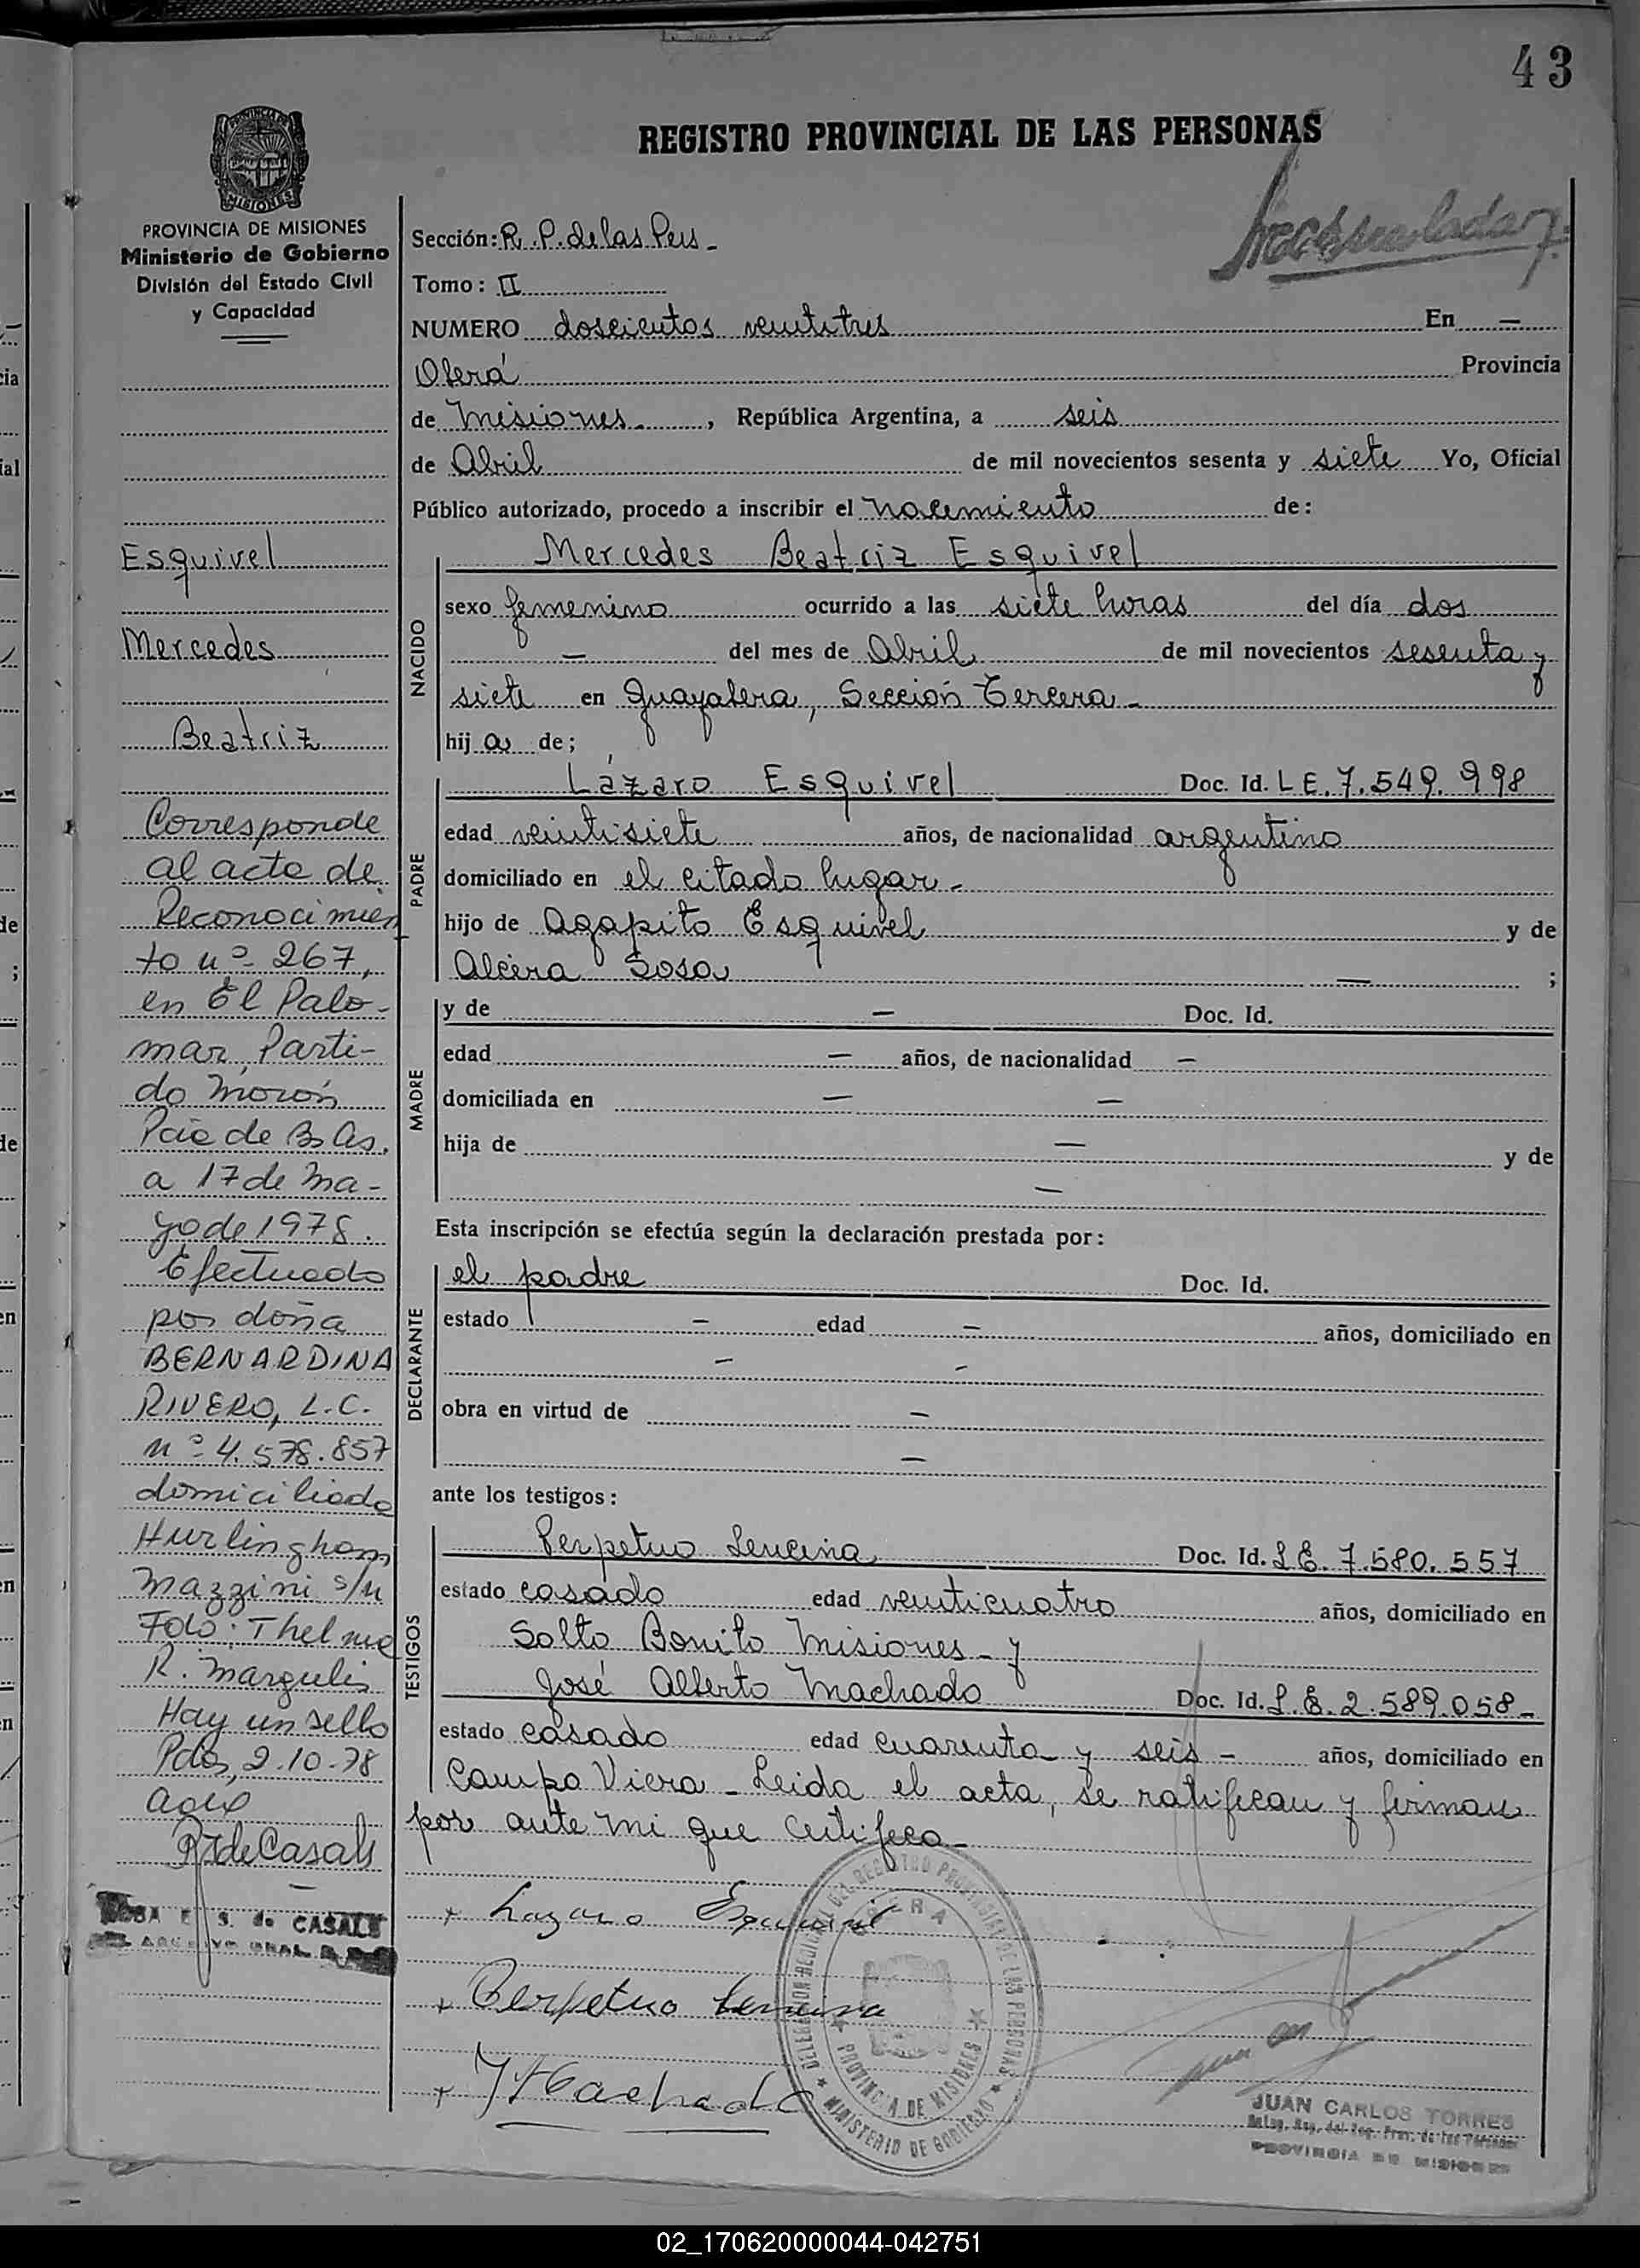 43
REGISTRO PROVINCIAL DE LAS PERSONAS
PROVINCIA DE MISIONES
Ministerio de Gobierno
División del Estado Civil
y Capacidad
Sección: R. P. de las Pers -
Tomo: II
NUMERO doscientos veintitres En —
Oberá Provincia
de Misiones. , República Argentina, a seis
de Abril de mil novecientos sesenta y siete Yo, Oficial
Público autorizado, procedo a inscribir el nacimiento de:
Mercedes Beatriz Esquivel
NACIDO
sexo femenino ocurrido a las siete horas del día dos
— del mes de Abril de mil novecientos sesenta y
siete en Guayabera, Sección Tercera -
hij a de;
PADRE
Lázaro Esquivel Doc. Id. L E. 7.549.998
edad veintisiete años, de nacionalidad argentino
domiciliado en el citado lugar -
hijo de Agapito Esquivel y de
Alcira Sosa — ;
MADRE
y de — Doc. Id.
edad — años, de nacionalidad —
domiciliada en — —
hija de — y de
—
Esta inscripción se efectúa según la declaración prestada por:
DECLARANTE
el padre Doc. Id.
estado — edad — años, domiciliado en
— —
obra en virtud de —
—
ante los testigos:
TESTIGOS
Perpetuo Lencina Doc. Id. L.E. 7.580.557
estado casado edad veinticuatro años, domiciliado en
Salto Bonito Misiones - y
José Alberto Machado Doc. Id. L.E. 2.589.058 -
estado casado edad cuarenta y seis - años, domiciliado en
Campo Viera - Leida el acta, se ratifican y firman
por ante mi que certifico -
Lazaro Esquivel
Perpetuo Lencina
JAMachado
DELEGACION DEL REGISTRO PROVINCIAL DE LAS PERSONAS
OBERA
PROVINCIA DE MISIONES
MINISTERIO DE GOBIERNO
JUAN CARLOS TORRES
PROVINCIA DE MISIONES
Esquivel
Mercedes
Beatriz
Corresponde
al acta de
Reconocimien
to nº 267,
en El Palo-
mar, Parti-
do Morón
Pcia de Bs As.
a 17 de Ma-
yo de 1978.
Efectuado
por doña
BERNARDINA
RIVERO, L.C.
nº 4.578.857
domiciliada
Hurlingham
Mazzini s/n
Fdo: Thelma
R. Margulis
Hay un sello
Pdas, 2-10-78
R S de Casals
ROSA E. S. de CASALS
02_170620000044-042751